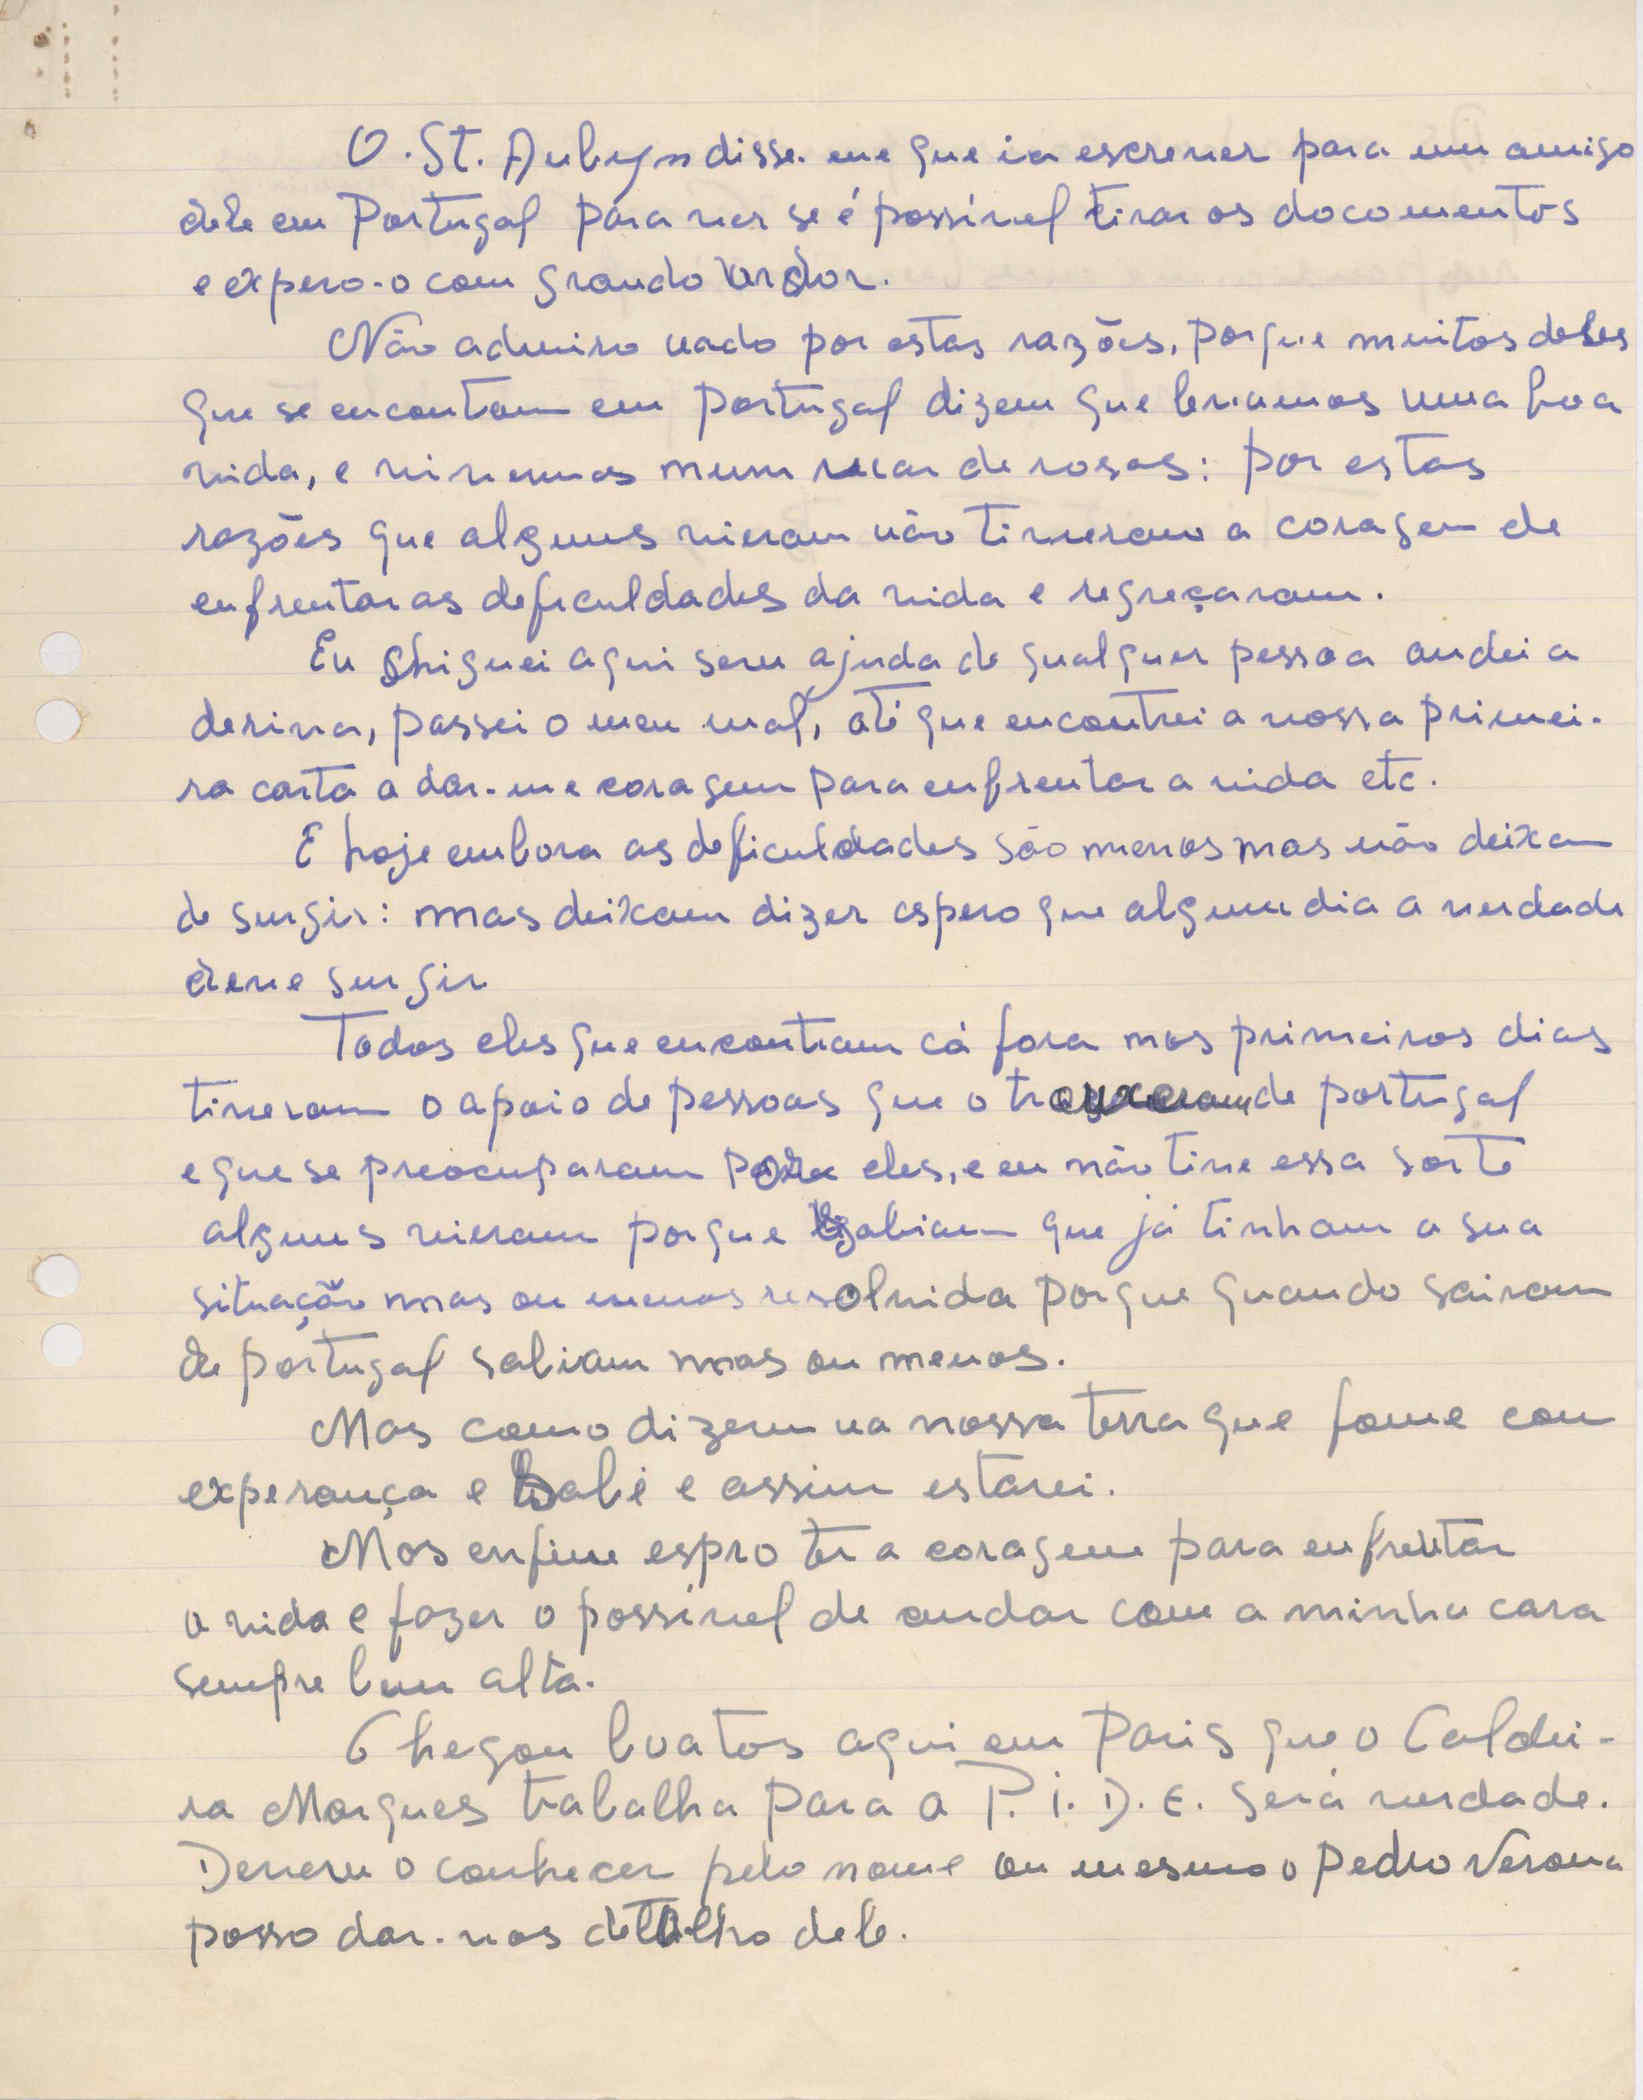 O. St. Aubyn disse-me que ia escrever para um amigo
dele em Portugal para ver se é possivel tirar os documentos
e expero-o com grando ardor.
Não admiro nado por estas razões, porque muitos deles
que se encontam em Portugal dizem que levamos uma boa
vida, e vivemos num mar de rosas: por estas
razões que alguns vieram não tiveram a coragem de
enfrentar as deficuldades da vida e regreçaram.
Eu chiguei aqui sem ajuda de qualquer pessoa andei a
deriva, passei o meu mal, até que encontrei a vossa primei-
ra carta a dar-me coragem para enfrentar a vida etc.
E hoje embora as deficuldades são menos mas não deixam
de surgir: mas deixam dizer espero que algum dia a verdade
deve surgir
Todos eles que encontram cá fora nos primeiros dias
tiveram o apoio de pessoas que o trouxeram de portugal
e que se preocuparam para eles, e eu não tive essa sorte
alguns vieram porque sabiam que já tinham a sua
situação mas ou menos resolvida porque quando sairam
de portugal sabiam mas ou menos.
Mas como dizem na nossa terra que fome com
experança e sabe e assim estarei.
Mas enfim espro ter a coragem para enfrentar
a vida e fazer o possivel de andar com a minha cara
sempre bem alta.
Chegou boatos aqui em Paris que o Caldei-
ra Marques trabalha para a P.I.D.E. será verdade.
Devem o conhecer pelo nome ou mesmo o Pedro Verona
posso dar-vos detalho dele.